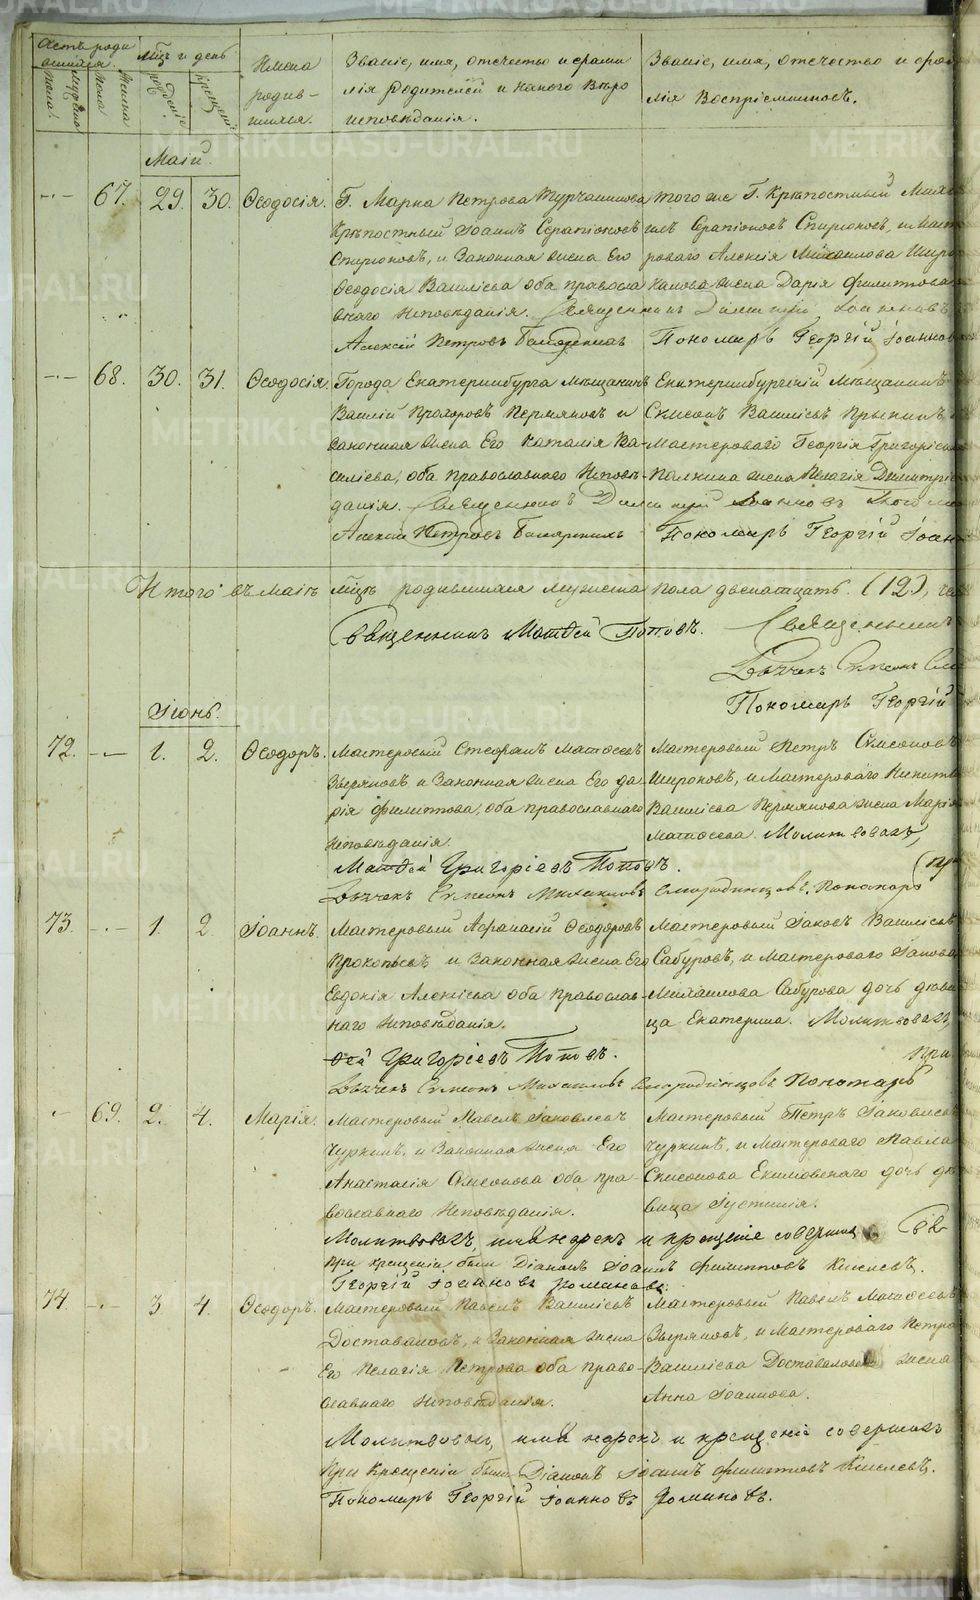 Щетъ роди
вшихся.
Мцъ и день
Имена
родив-
шихся.
Званіе, имя, отчество и фами
лія родителей и какого вѣро
исповѣданія.
Званіе, имя, отчество и фами
лія Воспріемниковъ.
Мужеска пола.
Женска пола
рожденія
крещенія
Маій.
67. 29. 30. Ѳеодосія.
Г. Марка Петрова Турчанинова
Крѣпостный Іоаннъ Серапіоновъ
Спиріоновъ, и Законная жена Его
Ѳеодосія Василіева оба правосла
внаго Исповѣданія. Священникъ Димитрій Іоанновъ
Алексій Петровъ
того же Г. Крѣпостный
Серапіоновъ Спиріоновъ, и Маст
роваго Алексія Михаилова Широ
канова жена Дарія Филиппова
Пономарь Георгій Іоанновъ
68. 30. 31. Ѳеодосія.
Города Екатеринбурга мѣщанинъ
Василій Прохоровъ Пермяковъ и
законная жена Его Наталія Ва-
силіева, оба православнаго Исповѣ-
данія. Священникъ Димитрій Іоанновъ
Алексій Петровъ
Екатеринбургскій мѣщанинъ
Симеонъ Василіевъ
Мастероваго Георгія Григоріева
жена Пелагія Димитріе
Пономарь Георгій Іоанн
Итого въ маіѣ мцѣ родившихся мужеска пола двенатцать. (12),
Священникъ Матѳей Поповъ.
Священникъ
Дьячекъ Симеонъ
Пономарь Георгій
Іюнь.
72. 1. 2. Ѳеодоръ.
Мастеровый Стефанъ Матѳеевъ
Звѣряковъ и Законная жена Его Да
рія Филиппова, оба православнаго
исповѣданія.
Матѳей Григоріевъ Поповъ.
Дьячекъ Симеонъ Михаиловъ Смородинцовъ. Пономарь
Мастеровый Петръ Симеоновъ
Широковъ, и Мастероваго Никиты
Василіева Пермякова жена Марія
Матѳеева. Молитвовалъ,
73. 1. 2. Іоаннъ.
Мастеровый Аѳанасій Ѳеодоровъ
Прокопьевъ и Законная жена Его
Евдокія Алексіева оба православ
наго Исповѣданія.
ѳей Григоріевъ Поповъ.
Дьячекъ Симеонъ Михаиловъ Смородинцовъ Пономарь
Мастеровый Іаковъ Василіевъ
Сабуровъ, и Мастероваго Іакова
Михаилова Сабурова дочь дѣви
ца Екатерина. Молитвовалъ,
При
69. 2. 4. Марія.
Мастеровый Павелъ Іаковлевъ
Чуркинъ, и Законная жена Его
Анастасія Симеонова оба пра-
вославнаго Исповѣданія.
Мастеровый Петръ Іаковлевъ
Чуркинъ, и Мастероваго Павла
Симеонова Екимовскаго дочь дѣ
вица Іустинія.
Молитвовалъ, имя нарекъ и крещеніе совершилъ Св
При крещеніи были Діаконъ Іоаннъ Филипповъ Киселевъ.
Георгій Іоанновъ Романовъ.
74. 3. 4. Ѳеодоръ.
Мастеровый Павелъ Василіевъ
Доставаловъ, и Законная жена
Его Пелагія Петрова оба право-
славнаго Исповѣданія.
Мастеровый Павелъ Матѳеевъ
Звѣряковъ, и Мастероваго Петра
Василіева Доставалова жена
Анна Іоаннова.
Молитвовалъ, имя нарекъ и крещеніе совершилъ
При Крещеніи были Діаконъ Іоаннъ Филипповъ Киселевъ.
Пономарь Георгій Іоанновъ Романовъ.
METRIKI.GASO-URAL.RU